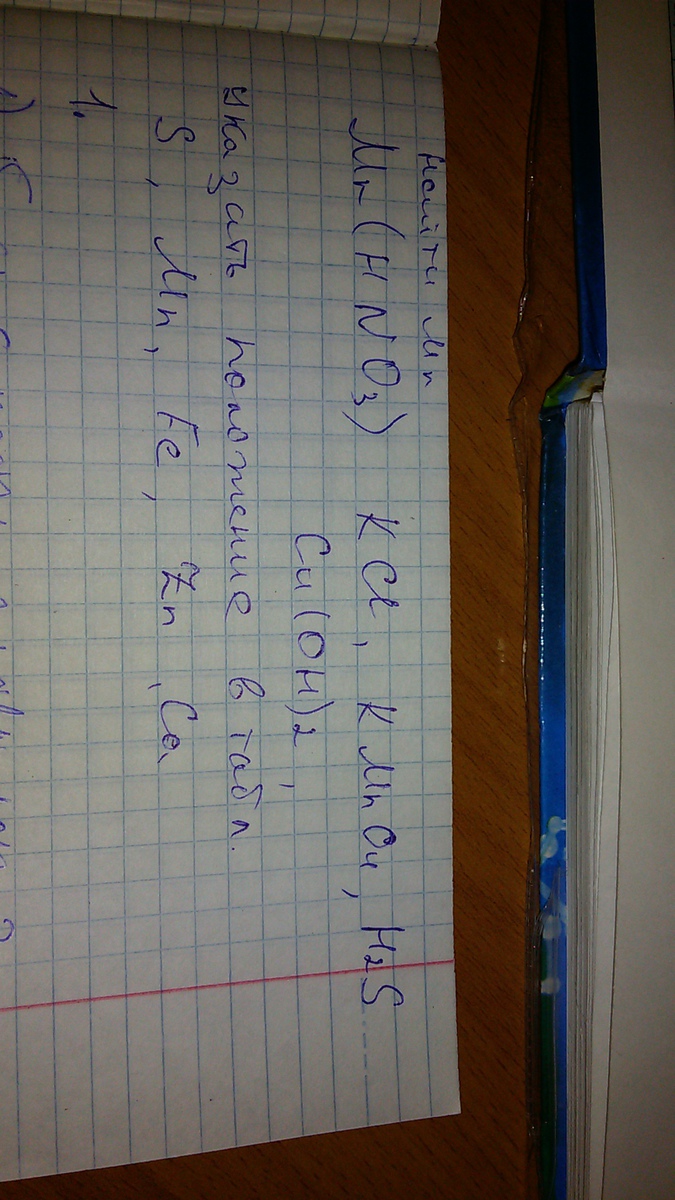 найти Mr
Mr(HNO3) KCl, KMnO4, H2S
Cu(OH)2,
указать положение в табл.
S, Mn, Fe, Zn, Ca,
1.